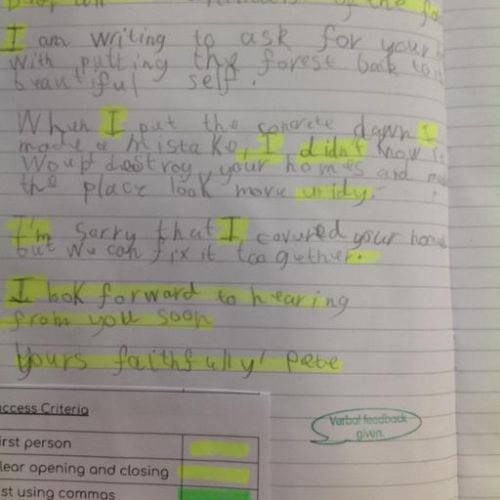 of the fo
I am writing to ask for your
with putting the forest back to it
beautiful self.
When I put the concrete down I
made a mistake, I didn't know it
woud destroy your homes and
the place look more
I'm sorry that I, covured your home
but we can fix it too gether.
I look forward to hearing
from you soon
Yours faithfully' Pete
uccess Criteria
irst person
lear opening and closing
st using commas
Verbal feedback
given.